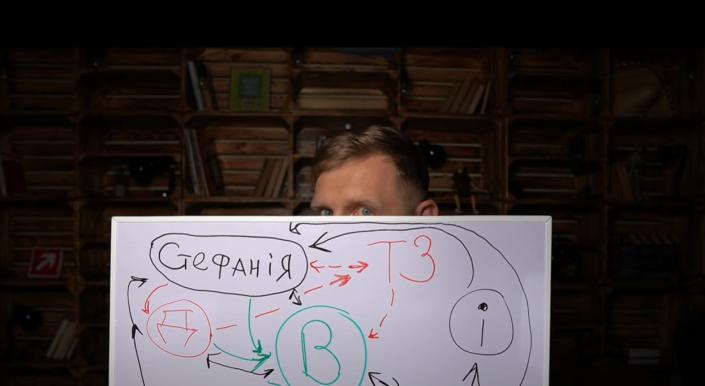 Гефанія
ТЗ
Д
В
і